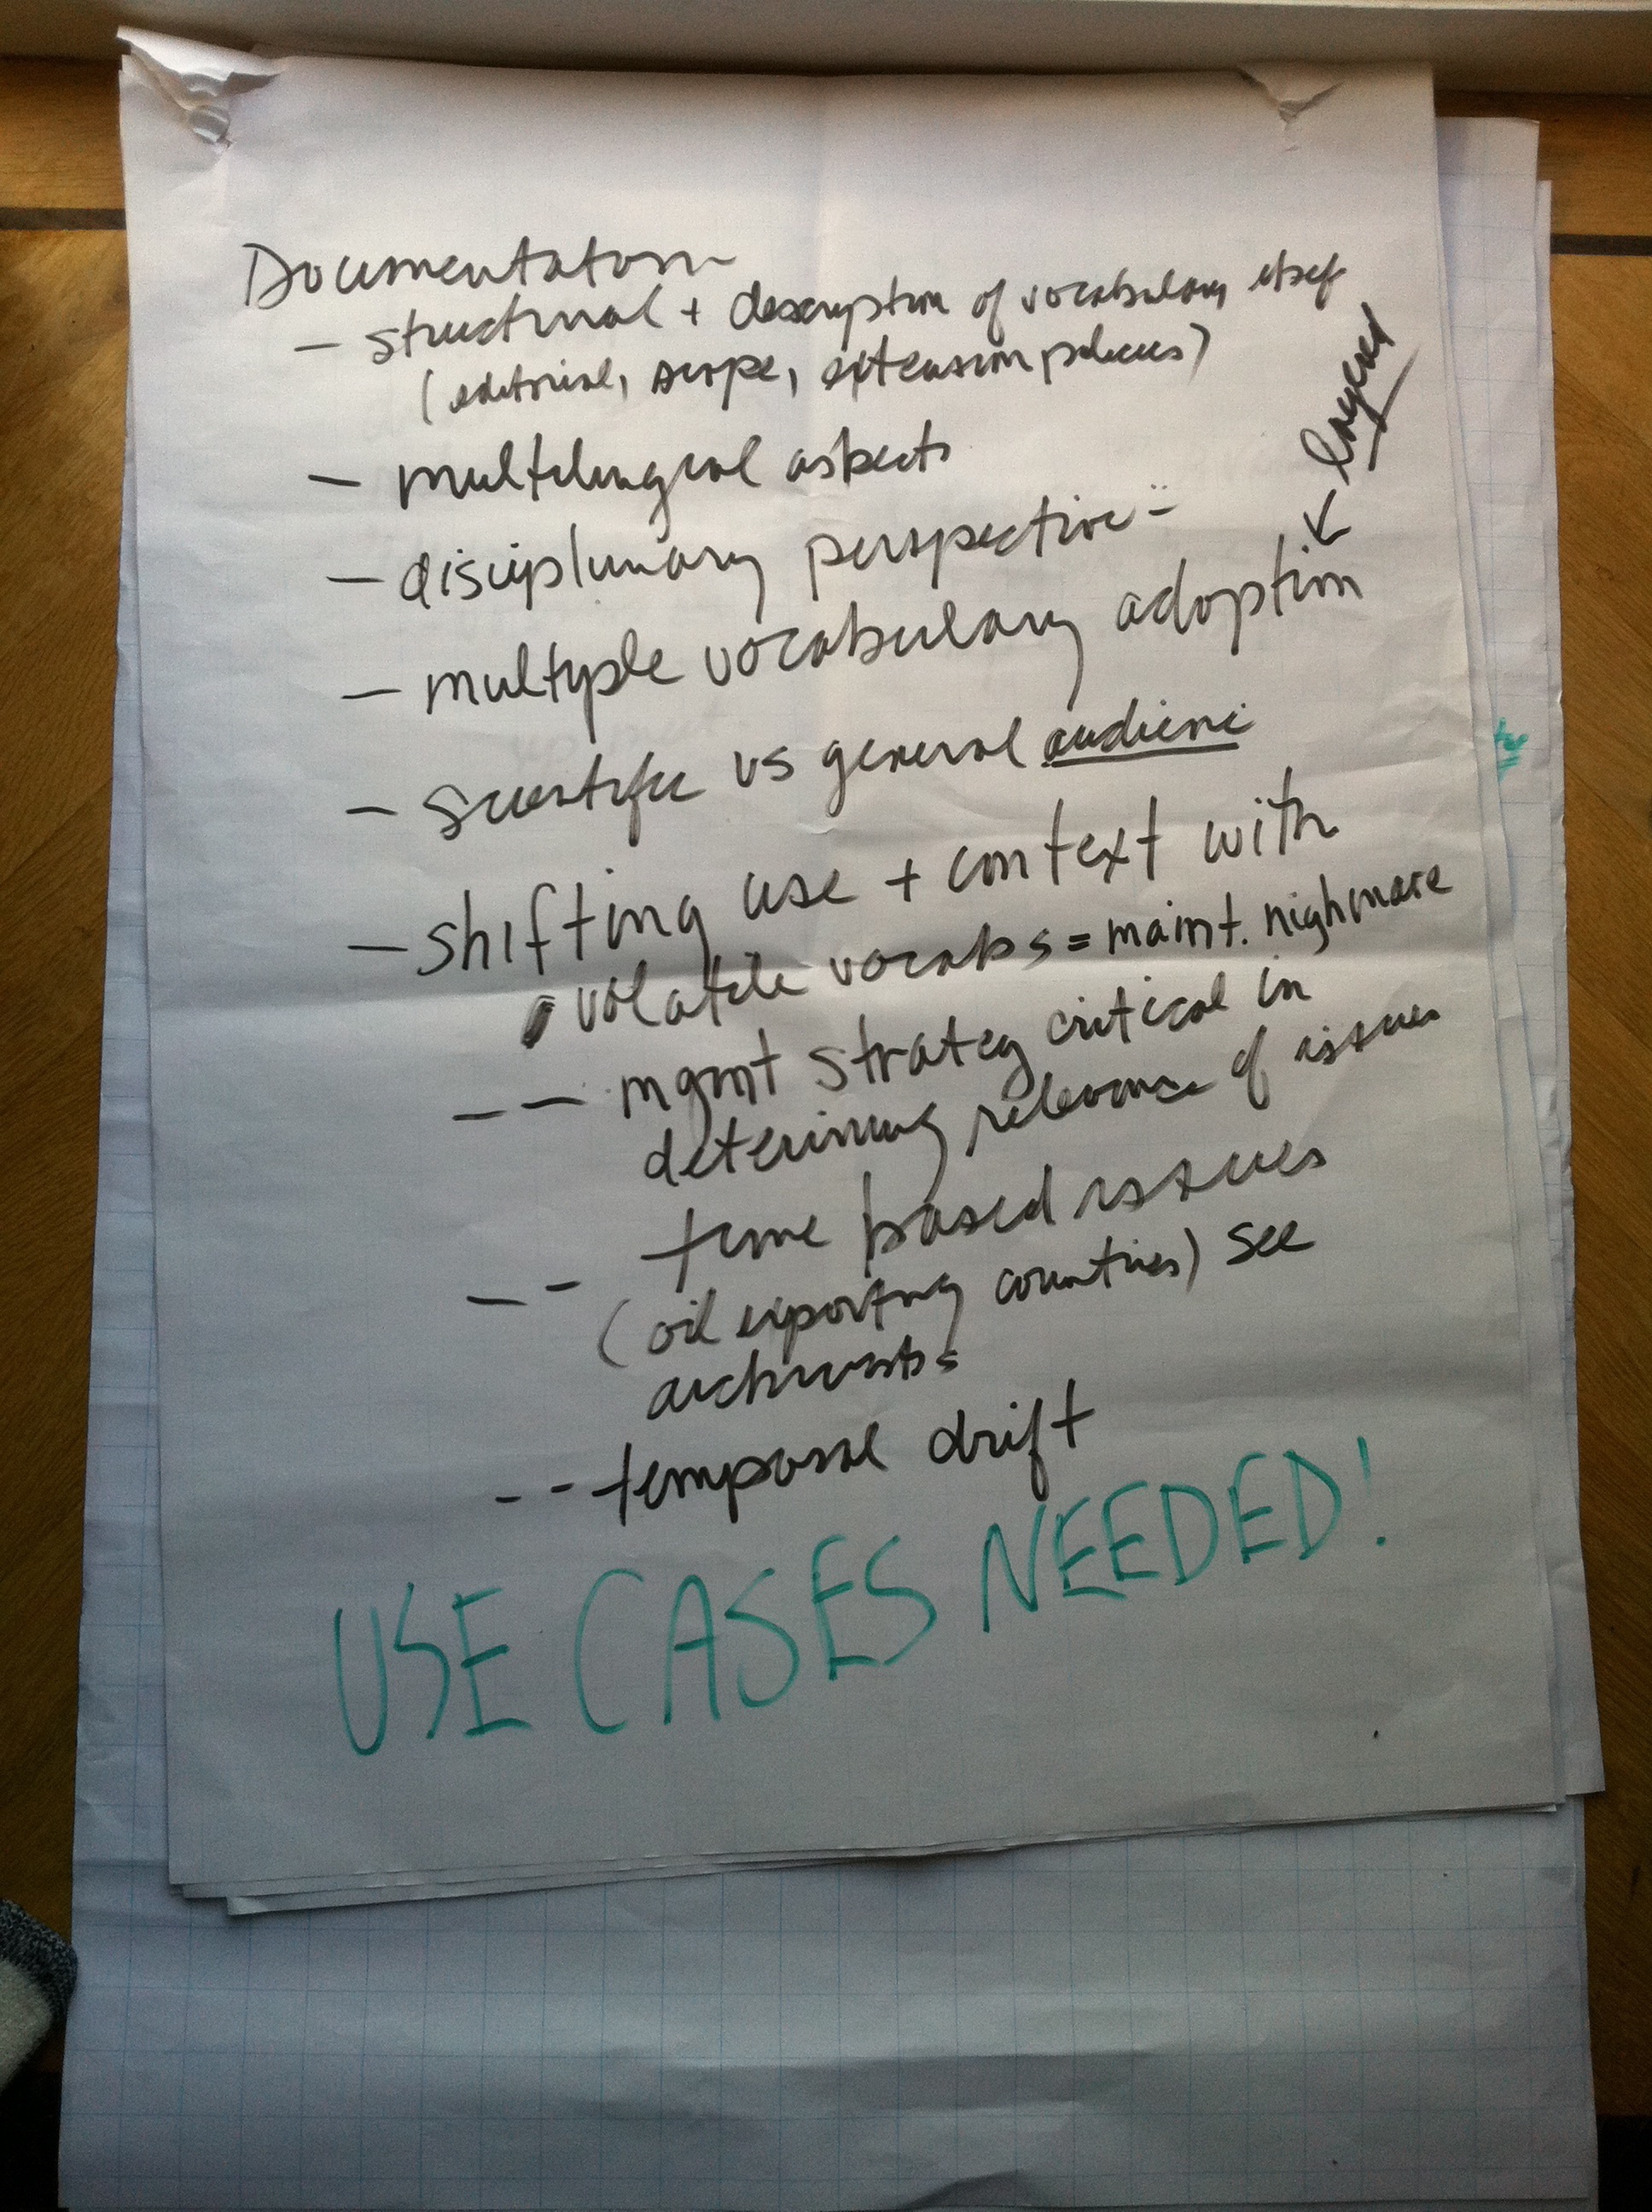 Documentation
- structural + description of vocabulary itself
(editorial, scope, extension policies)
layered
- multilingual aspects
- disciplinary perspective
- multiple vocabulary adoption
- scientific vs general audience
- shifting use + context with
volatile vocabs = maint. nighmare
-- mgmt strategy critical in
determining relevance of issues
-- time based issues
(oil exporting countries) see
archivists
-- temporal drift
USE CASES NEEDED!